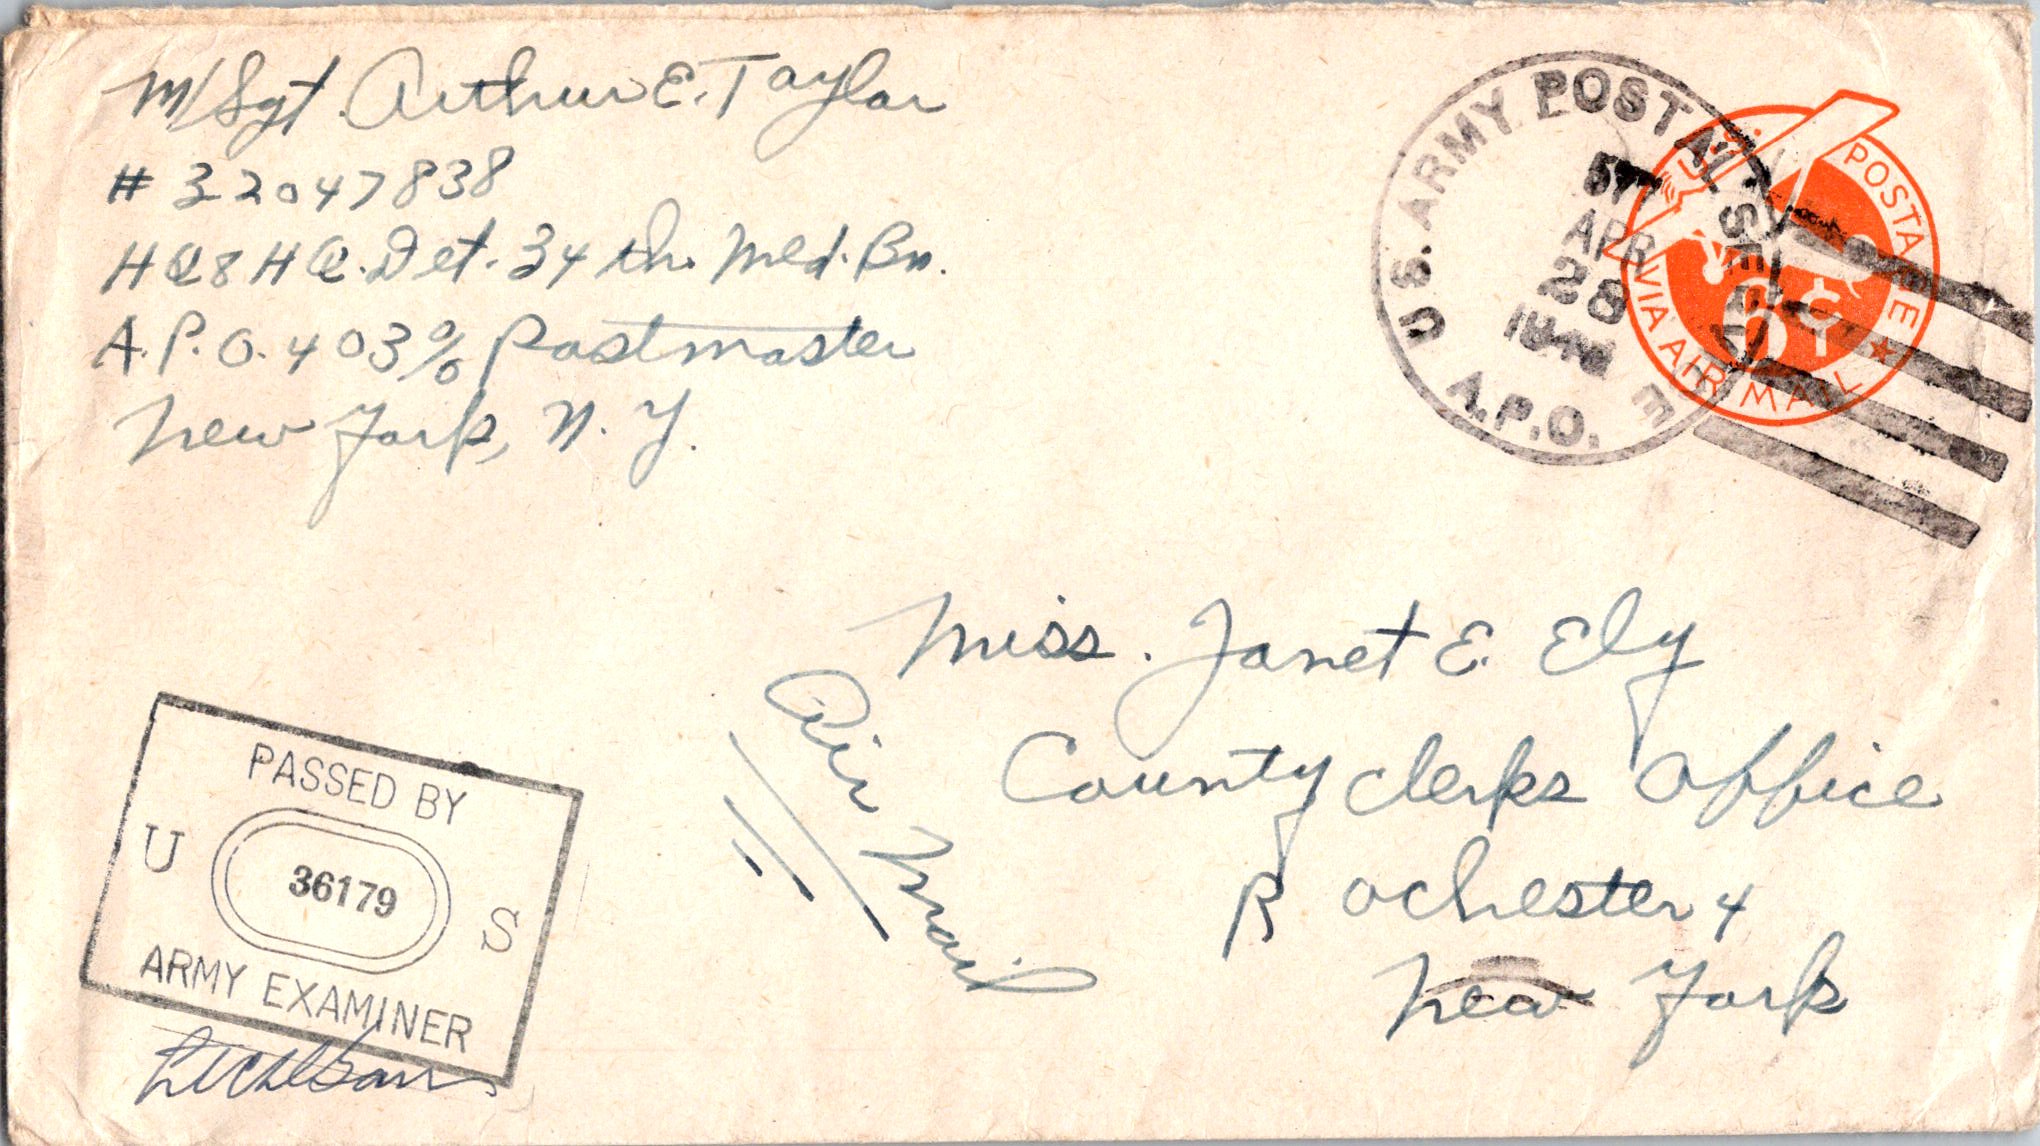 M/Sgt. Arthur E. Taylor
# 32047838
HQ & HQ. Det. 34th. Med. Bn.
A.P.O. 403 % Postmaster
New York, N.Y.
U.S. ARMY POSTAL SERVICE
APR
28
A.P.O.
U.S. POSTAGE
6¢
VIA AIR MAIL
Miss. Janet E. Ely
County Clerks Office
Rochester 4
New York
Air Mail
PASSED BY
U 36179 S
ARMY EXAMINER